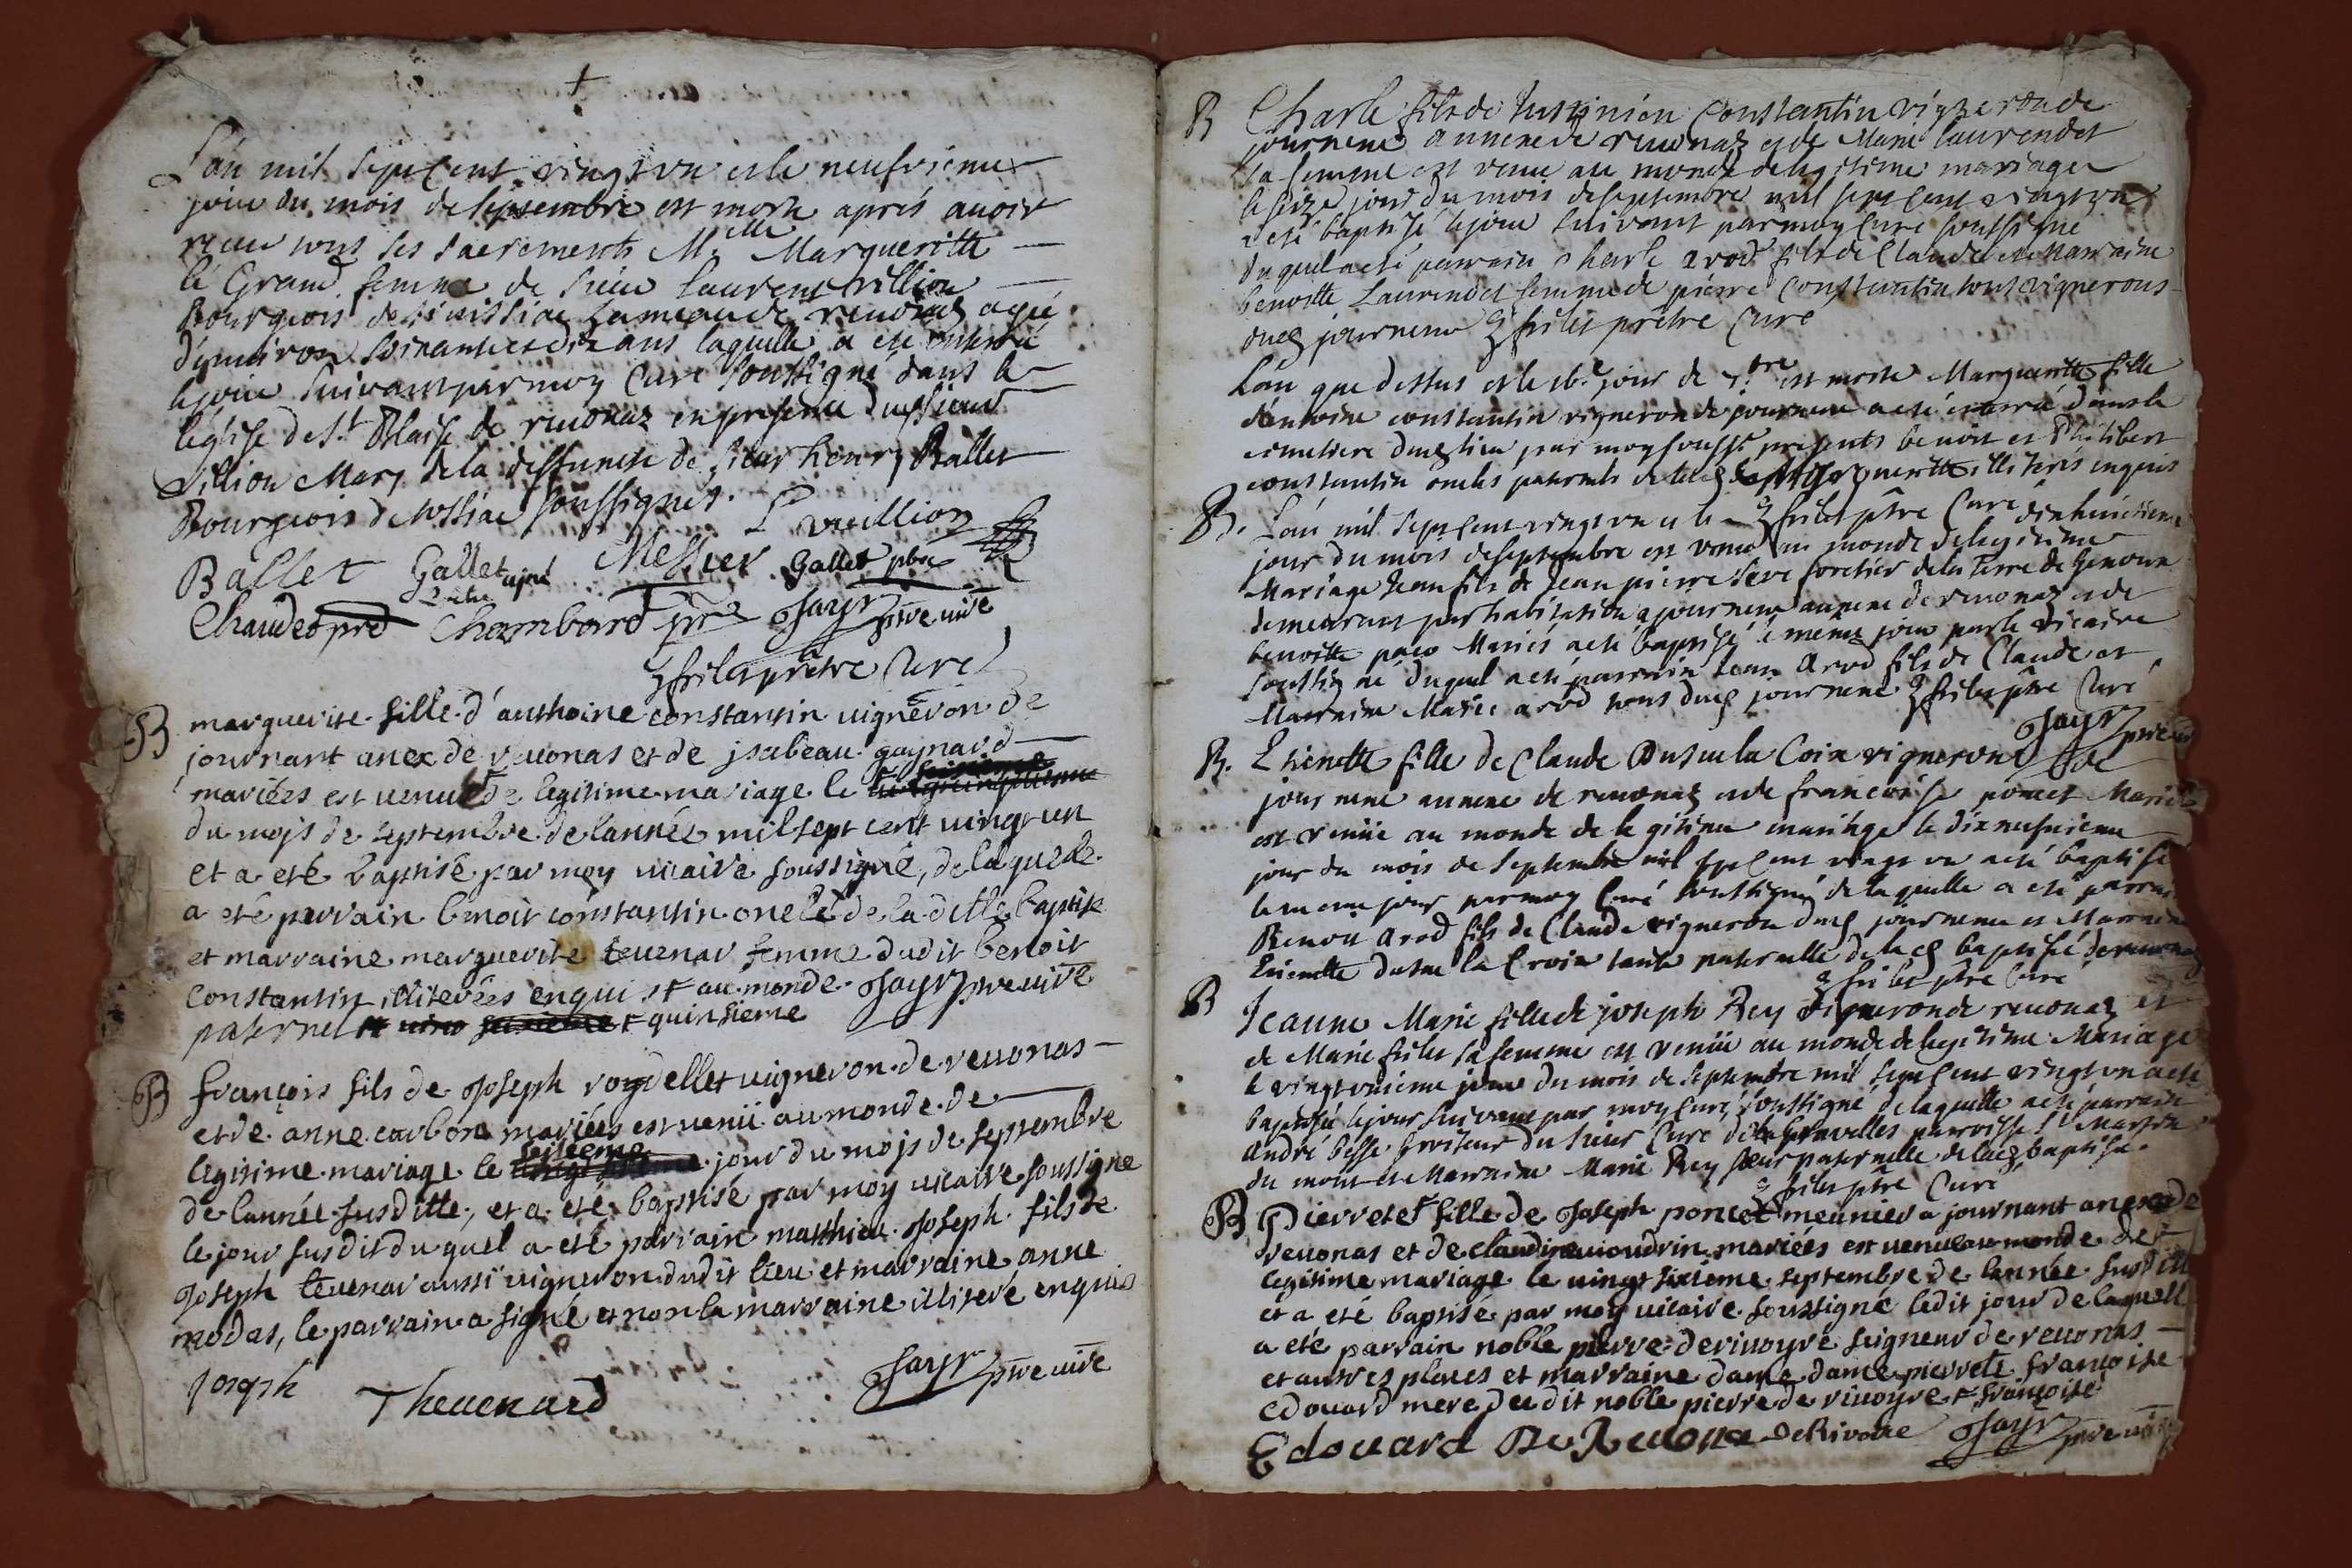 L'an mil sept cent vingt vn et le neufvieme
jour du mois de septembre est morte aprés auoir
receu tous ses sacrements M.elle Margueritte
le Grand femme de sieur Laurent Villion
Bourgeois de
Reuonaz agée
d'enuiron soixante et dix ans laquelle a eté enterré
le jour suivant par moy Curé soussigné dans le
l'église de St. Blaise de reuonaz en presence dud sieur
Villion Mary de la deffuncte de sieur henry Ballet
Bourgeois de soussignés. L Vuillion
Ballet Gallet ainé Messier Gallet pbre
Chaudet pre Chambard ptre Jayr ptre vire
frilet prêtre Curé
B marguerite fille d'anthoine constantin uigneron de
journant anex de reuonas et de jsabeau gaynard
mariées est venue F de legitime mariage le
du mojs de septembre de lannée mil sept cent uingt un
et a eté baptisé par moy uicaire soussigné, de laquelle
a eté parrain benoit constantin oncle de la ditte baptisé
et marraine marguerite teuenar femme dudit benoit
constantin illiterées enquis F au monde. Jayr ptre uire
paternel F quinsieme
B françois fils de Joseph roydellet uigneron de reuonas
et de anne carbon mariées est uenü au monde de
legitime mariage le seisieme jour du mojs de septembre
de lannée susditte, et a eté baptisé par moy uicaire soussigne
le jour susdit du quel a eté parrain matthieu Joseph fils de
Joseph teuenar aussi uigneron dudit lieu et marraine anne
modas, le parrain a signé et non la marraine illiteré enquis
Joseph Theuenard Jayr ptre uire
B Charle fils de Justinien Constantin vigneron de
journene annexe de reuonaz et de Marie laurendet
sa femme est venu au monde de legitime mariage
le seize jour du mois de septembre mil sept cent vingt vn
a eté baptisé le jour suivant par moy Curé soussigné
duquel a eté parrain Charle arod fils de Claude et Marraine
benoitte Laurendet femme de pierre Constantin tous vignerons
dud journene frilet prêtre Curé
L'an que dessus et le jour de 7.bre est morte Margueritte fille
d'antoine constantin vigneron de journene a eté enterré dans le
cimetiere dud lieu par moy souss.é presents benoit et Philibert
constantin oncles paternels de lad Margueritte illiterés enquis
B. L'an mil sept cent vingt vn et le dixhuictieme frilet ptre Curé
jour du mois de septembre est venu au monde de legitime
Mariage Jean fils de Jean pierre forestier de la Terre de
demeurant par habitation a journene annexe de reuonaz et de
benoitte Mariés a eté baptisé le même jour par le vicaire
soussigné duquel a eté parrain Jean arod fils de Claude et
Marraine Marie arod tous dud journene frilet ptre Curé
Jayr ptre
B. Etienette fille de Claude Dutuela Croix vigneron de
journene annexe de reuonaz et de francoise poncet Mariés
est venüe au monde de legitime mariage le dixneufuieme
jour du mois de Septembre mil sept cent vingt vn a eté baptisé
le meme jour par moy Curé soussigné de laquelle a eté parrain
Benoit arod fils de Claude vigneron dud journene et Marraine
Etienette la Croix tante paternelle de lad baptisée
frilet ptre Curé
B Jeanne Marie fille de joseph Rey vigneron de reuonaz et
de Marie frilet sa femme est venüe au monde de legitime Mariage
le vingt vnieme jour du mois de septembre mil sept cent vingt vn a eté
baptisée le jour suivant par moy Curé soussigné de laquelle a eté parrain
andré besse seruiteur du sieur Curé parroisse St Martin
du mont et Marraine Marie Rey sœur paternelle de lad baptisée.
frilet ptre Curé
B Pierrete F fille de Joseph poncet meunier a journant anex de
reuonas et de claudine uioudrin mariées est uenue au monde de
legitime mariage le uingt sixieme septembre de lannée susditt
et a eté baptisé par moy uicaire soussigné ledit jour de laquell
a eté parrain noble pierre deriuoyre seigneur de reuonas
et autres places et marraine dame dame pierrete françoise
edouard mere dudit noble pierre de riuoyre F françoise
Edouard De Reuona DeRivoire Jayr ptre